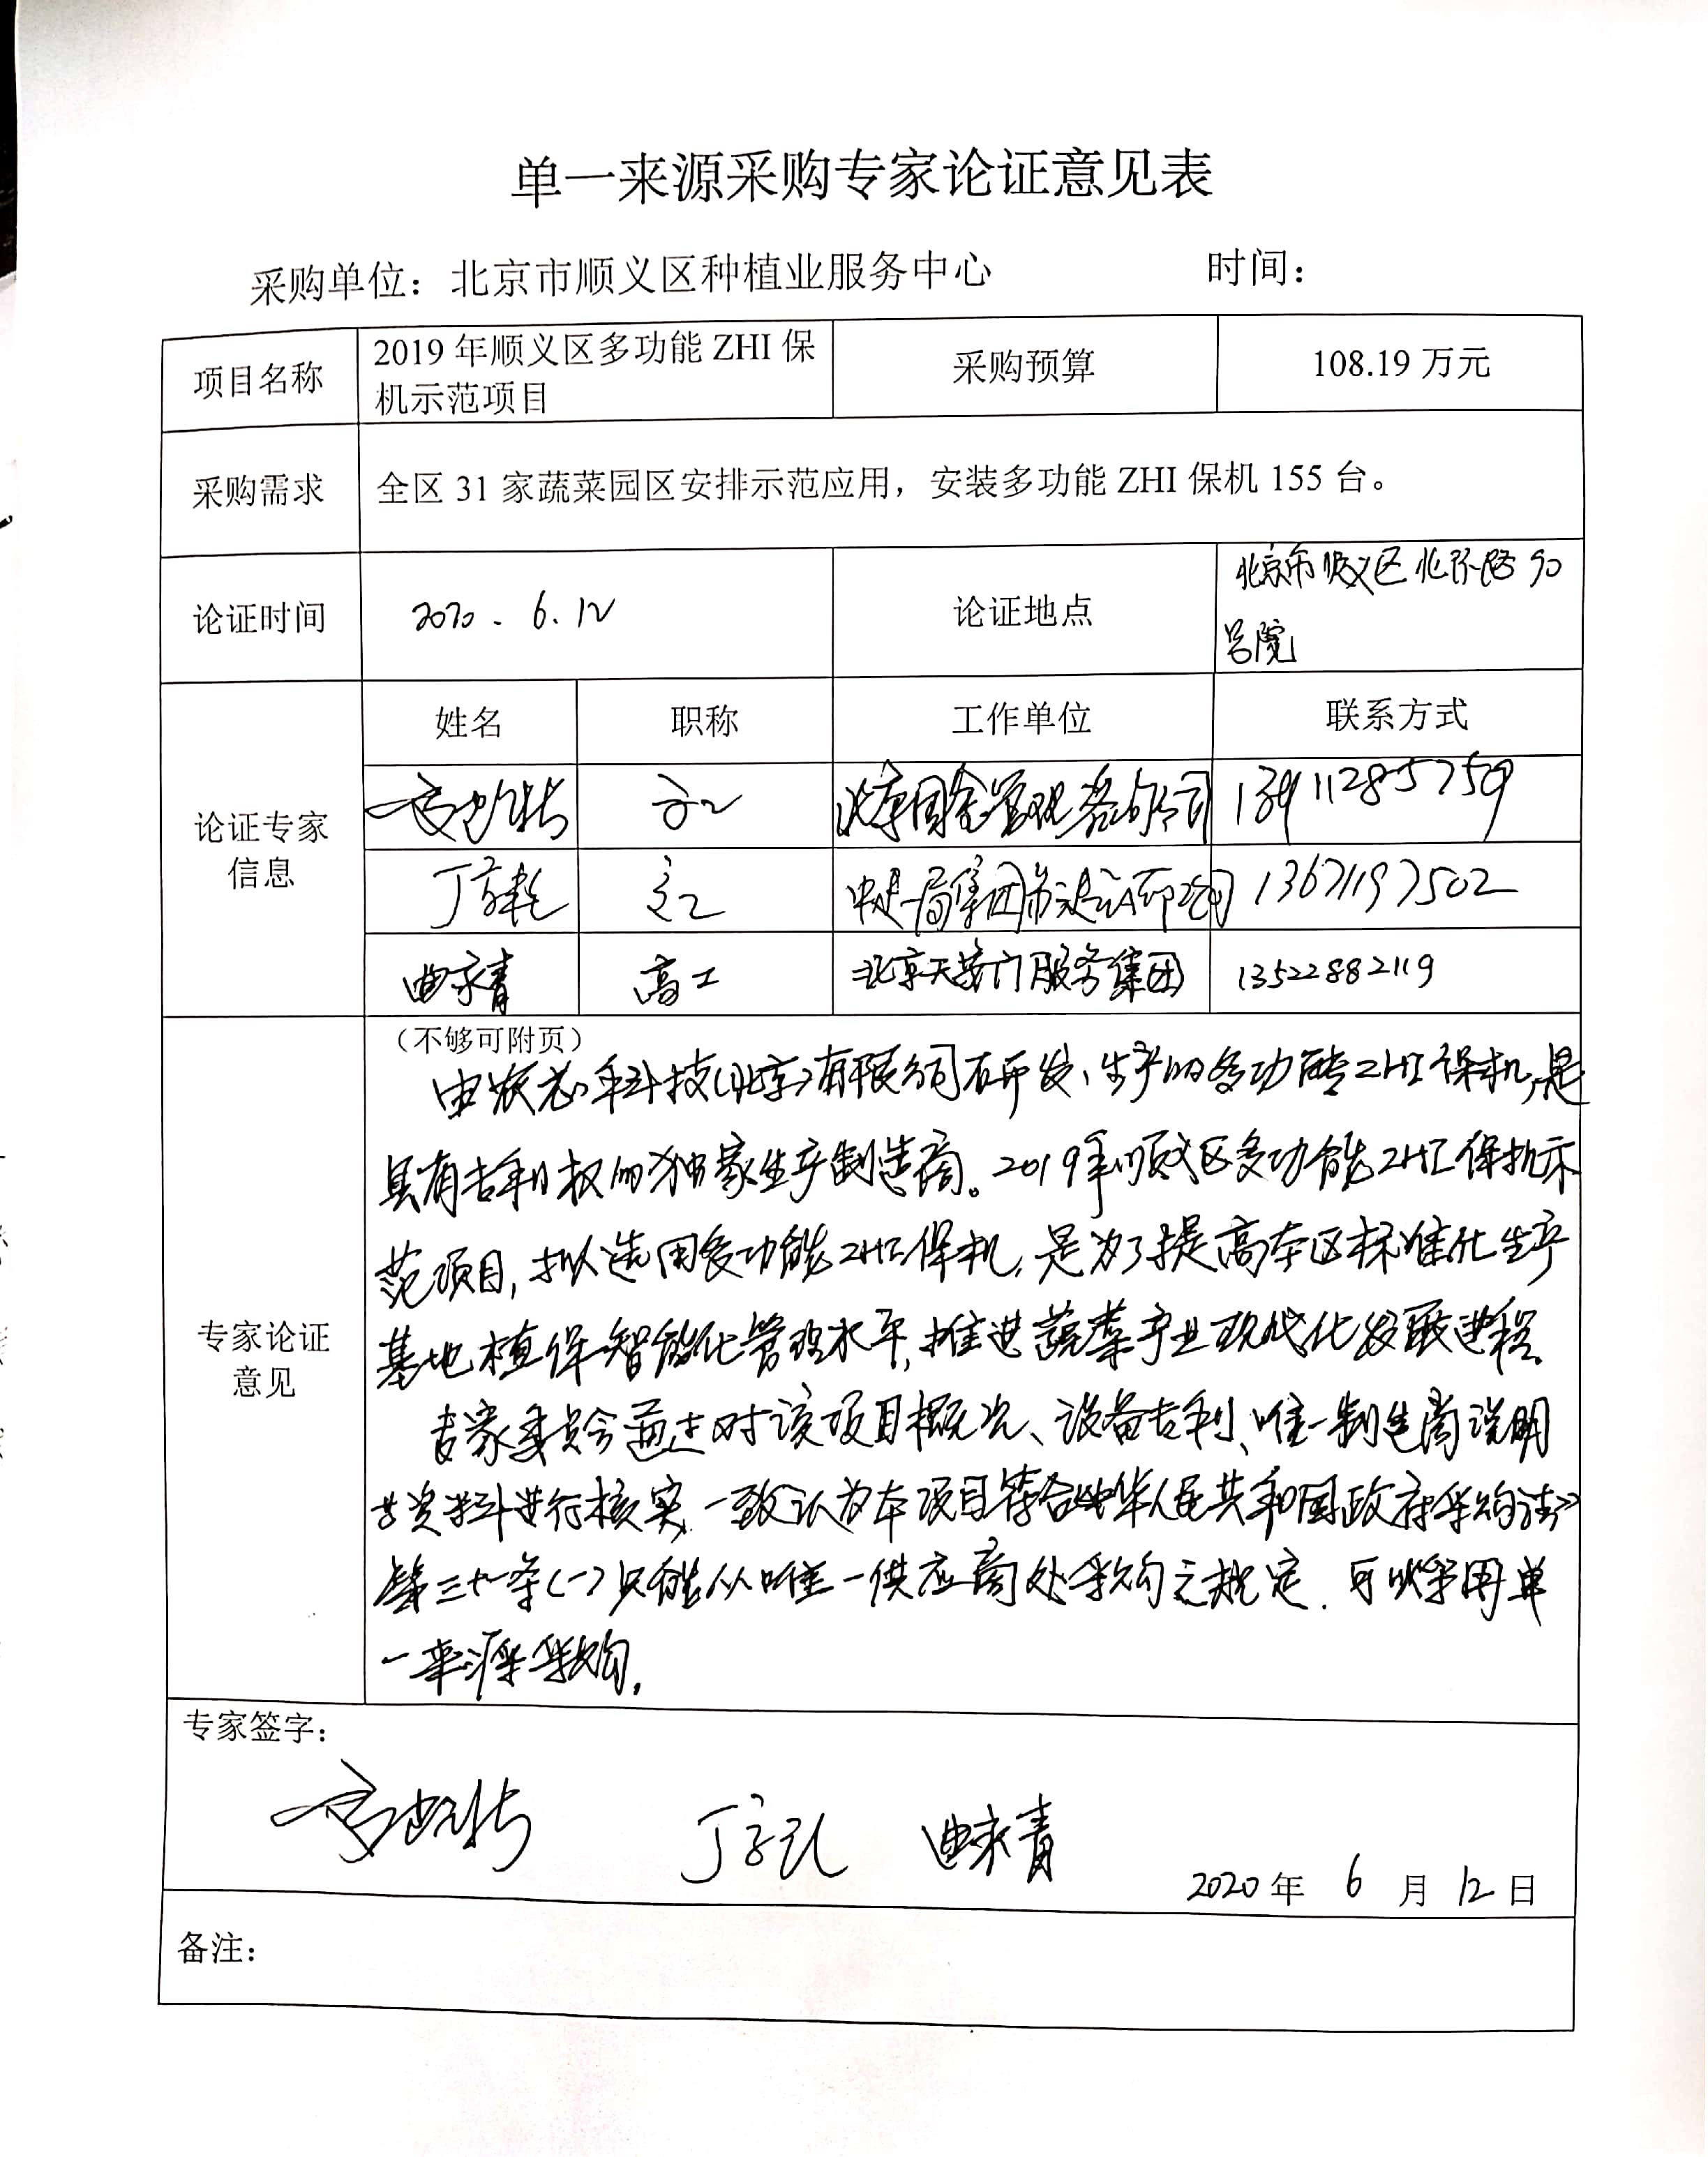 单一来源采购专家论证意见表
采购单位：北京市顺义区种植业服务中心 时间：
项目名称 2019 年顺义区多功能 ZHI 保机示范项目 采购预算 108.19 万元
采购需求 全区 31 家蔬菜园区安排示范应用，安装多功能 ZHI 保机 155 台。
论证时间 2020.6.12 论证地点 北京市顺义区北环路90
号院
论证专家
信息
姓名 职称 工作单位 联系方式
13911285759
丁 13671197502
曲永青 高工 北京天安门服务集团 13522882119
专家论证
意见
（不够可附页）
由农芯科技(北京)有限公司研发、生产的多功能ZHI保机，是
具有专利权的独家生产制造商。2019年顺义区多功能ZHI保机示
范项目，拟选用多功能ZHI保机，是为了提高本区标准化生产
基地植保智能化管理水平，推进蔬菜产业现代化发展进程。
专家委员会通过对该项目概况、设备专利、唯一制造商说明
等资料进行核实，一致认为本项目符合《中华人民共和国政府采购法》
第三十一条(一)只能从唯一供应商处采购之规定，可以采用单
一来源采购。
专家签字：
丁 曲永青
2020 年 6 月 12 日
备注：